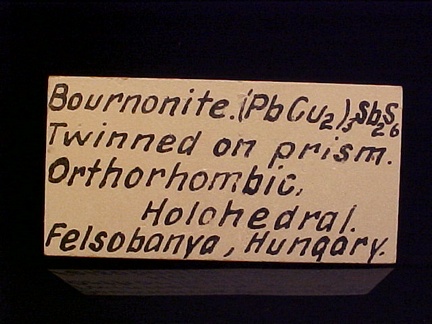 Bournonite. (PbCu₂)₃Sb₂S₆
Twinned on prism.
Orthorhombic,
Holohedral.
Felsobanya, Hungary.